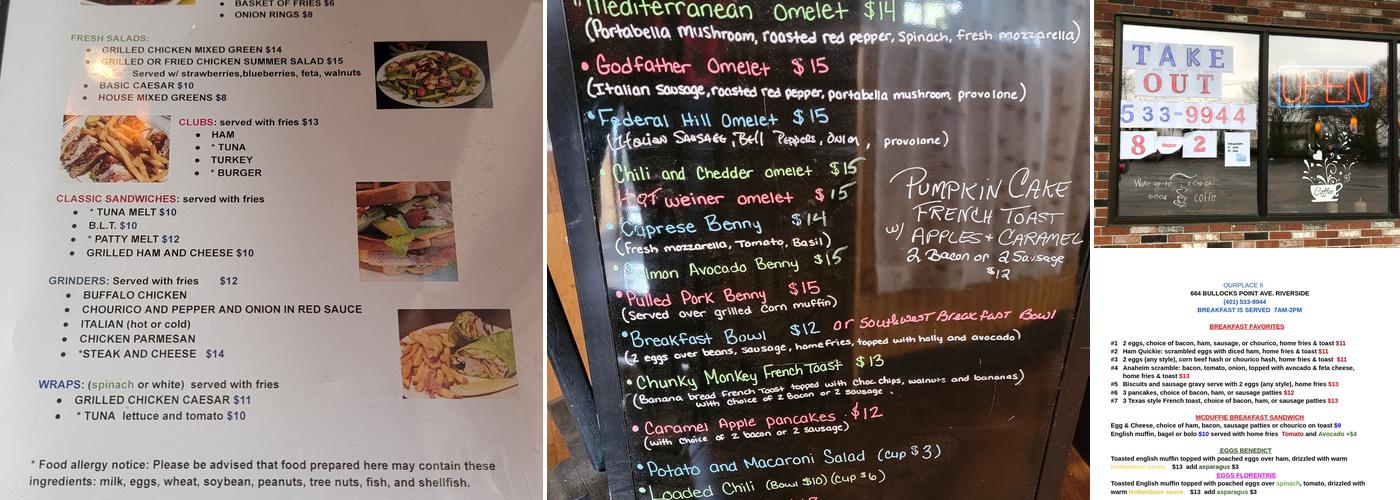 BASKET OF FRIES $6
ONION RINGS $8
FRESH SALADS:
GRILLED CHICKEN MIXED GREEN $14
GRILLED OR FRIED CHICKEN SUMMER SALAD $15
Served w/ strawberries,blueberries, feta, walnuts
BASIC CAESAR $10
HOUSE MIXED GREENS $8
CLUBS: served with fries $13
HAM
* TUNA
TURKEY
* BURGER
CLASSIC SANDWICHES: served with fries
* TUNA MELT $10
B.L.T. $10
* PATTY MELT $12
GRILLED HAM AND CHEESE $10
GRINDERS: Served with fries $12
BUFFALO CHICKEN
CHOURICO AND PEPPER AND ONION IN RED SAUCE
ITALIAN (hot or cold)
CHICKEN PARMESAN
*STEAK AND CHEESE $14
WRAPS: (spinach or white) served with fries
GRILLED CHICKEN CAESAR $11
* TUNA lettuce and tomato $10
* Food allergy notice: Please be advised that food prepared here may contain these
ingredients: milk, eggs, wheat, soybean, peanuts, tree nuts, fish, and shellfish.
Mediterranean Omelet $14
(Portabella mushroom, roasted red pepper, Spinach, fresh mozzarella)
Godfather Omelet $15
(Italian sausage, roasted red pepper, portabella mushroom, provolone)
Federal Hill Omelet $15
(Italian SAUSAGE, Bell Peppers, ONION, provolone)
Chili and Chedder omelet $15
Hot weiner omelet $15
Caprese Benny $14
(Fresh mozzarella, Tomato, Basil)
Salmon Avocado Benny $15
Pulled Pork Benny $15
(Served over grilled corn muffin)
Breakfast Bowl $12 or Southwest Breakfast Bowl
(2 eggs over beans, sausage, homefries, topped with holly and avocado)
Chunky Monkey French Toast $13
(Banana bread French Toast topped with choc chips, walnuts and bananas)
with choice of 2 Bacon or 2 sausage
Caramel Apple pancakes $12
(with choice of 2 bacon or 2 sausage)
Potato and Macaroni Salad (cup $3)
Loaded Chili (Bowl $10) (cup $6)
PUMPKIN CAKE
FRENCH TOAST
w/ APPLES + CARAMEL
2 Bacon or 2 Sausage
$12
TAKE
OUT
533-9944
8-2
OPEN
Wake up to a cup of
good coffee
Coffee
OURPLACE II
664 BULLOCKS POINT AVE. RIVERSIDE
(401) 533-9944
BREAKFAST IS SERVED 7AM-2PM
BREAKFAST FAVORITES
#1 2 eggs, choice of bacon, ham, sausage, or chourico, home fries & toast $11
#2 Ham Quickie: scrambled eggs with diced ham, home fries & toast $11
#3 2 eggs (any style), corn beef hash or chourico hash, home fries & toast $11
#4 Anaheim scramble: bacon, tomato, onion, topped with avocado & feta cheese,
home fries & toast $13
#5 Biscuits and sausage gravy serve with 2 eggs (any style), home fries $13
#6 3 pancakes, choice of bacon, ham, or sausage patties $12
#7 3 Texas style French toast, choice of bacon, ham, or sausage patties $13
MCDUFFIE BREAKFAST SANDWICH
Egg & Cheese, choice of ham, bacon, sausage patties or chourico on toast $9
English muffin, bagel or bolo $10 served with home fries Tomato and Avocado +$4
EGGS BENEDICT
Toasted english muffin topped with poached eggs over ham, drizzled with warm
Hollandaise sauce. $13 add asparagus $3
EGGS FLORENTINE
Toasted English muffin topped with poached eggs over spinach, tomato, drizzled with
warm Hollandaise sauce. $13 add asparagus $3